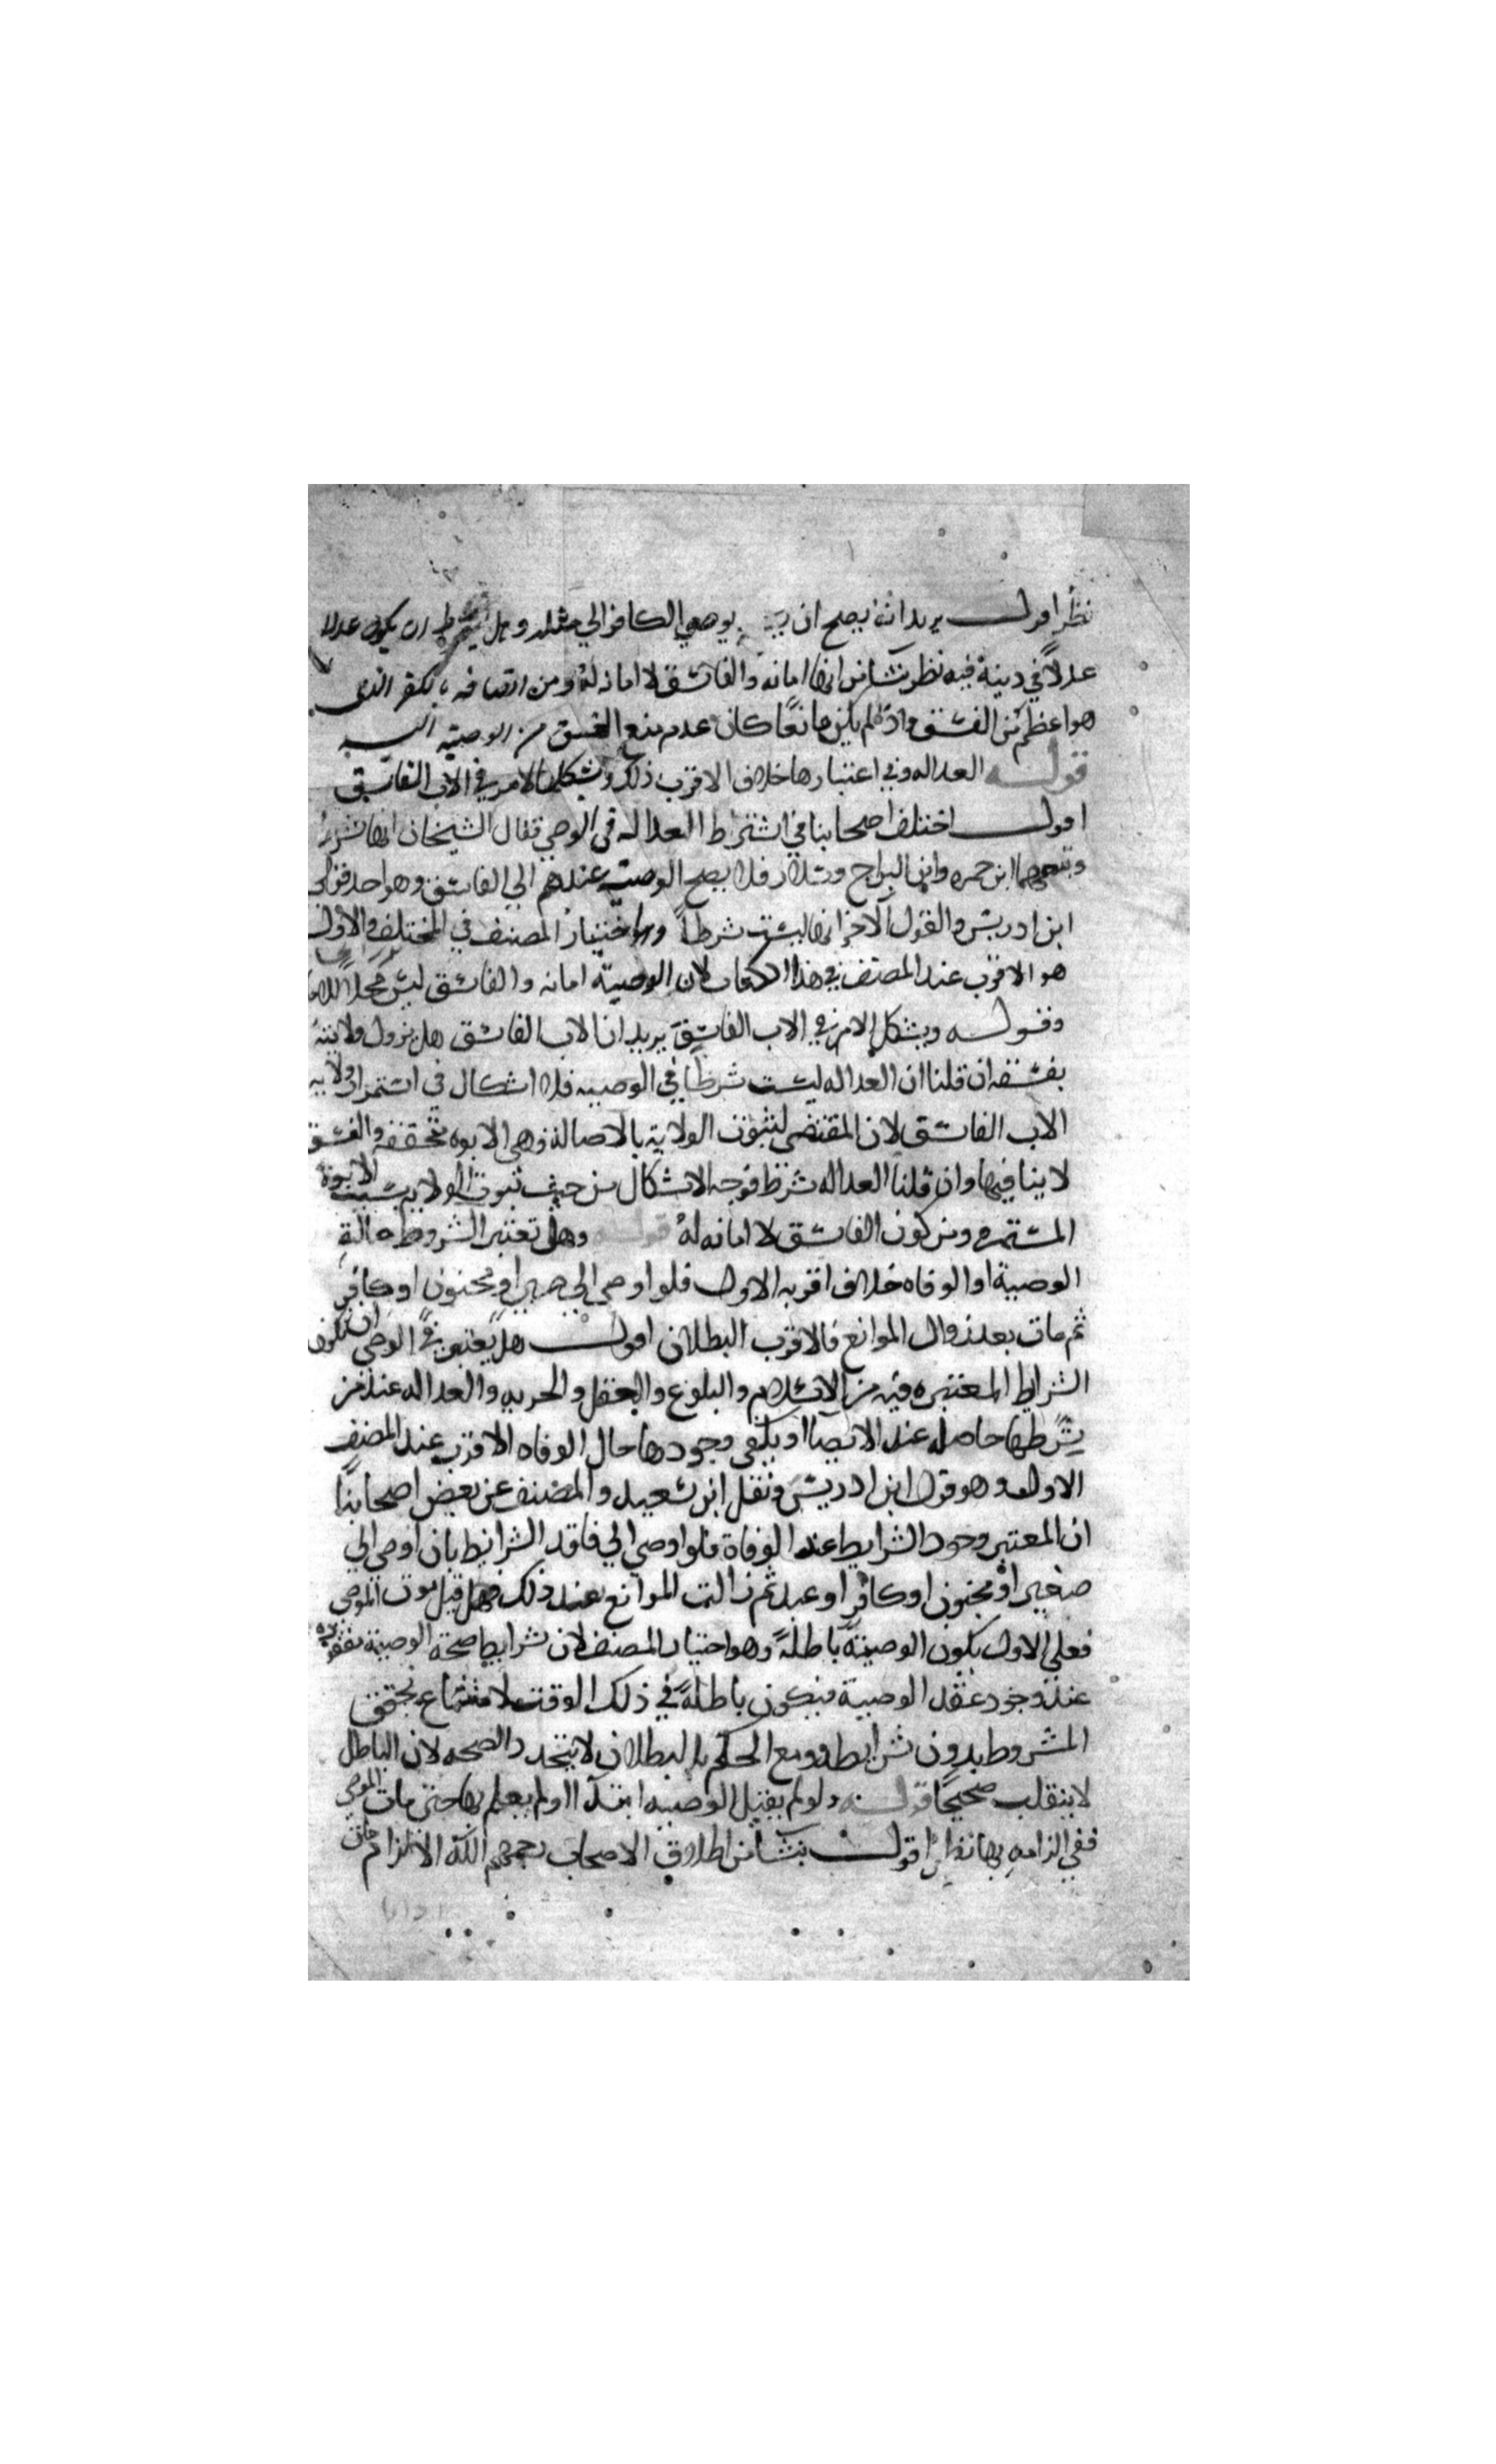 نظر اقول يريد انه يصح ان يوصي الكافر الي مثله وهل يشترط ان يكون عدلا
عدلا في دينه فيه نظر ينشا من انها امانه والفاسق لا امانه له ومن اتصافه بالكفر الذي
هو اعظم من الفسق واذا لم يكن مانعا كان عدم منع الفسق من الوصية اليه
قوله العداله وفي اعتبارها خلاف الاقرب ذلك ويشكل الامر في الاب الفاسق
اقول اختلف اصحابنا في اشتراط العداله في الوصي فقال الشيخان انها شرط
وتبعهما ابن حمزه وابن البراج وسلار فلا يصح الوصيه عندهم الي الفاسق وهو احد قولي
ابن ادريس والقول الاخر انها ليست شرطا واختيار المصنف في المختلف والاول
هو الاقرب عند المصنف في هذا الكتاب لان الوصية امانه والفاسق ليس محلا
وقوله ويشكل الامر في الاب الفاسق يريد ان الاب الفاسق هل يزول ولايته
بفسقه ان قلنا ان العداله ليست شرطا في الوصيه فلا اشكال في استمرار ولايه
الاب الفاسق لان المقتضي لثبوت الولاية بالاصالة وهي الابوه متحققه والفسق
لا ينافيها وان قلنا العداله شرط فوجه الاشكال من حيث ثبوت الولايه بسبب الابوة
المستمره ومن كون الفاسق لا امانه له قوله وهل تعتبر الشروط حالة
الوصية او الوفاه خلاف اقربه الاول فلو اوصي الي صبي او مجنون او كافر
ثم مات بعد زوال الموانع فالاقرب البطلان اقول هل يعتبر في الوصي ان تكون
الشرايط المعتبره فيه من الاسلام والبلوغ والعقل والحريه والعداله عند من
يشرطها حاصله عند الايصا او يكفي وجودها حال الوفاه الاقرب عند المصنف
الاول وهو قول ابن ادريس ونقل ابن سعيد والمصنف عن بعض اصحابنا
ان المعتبر وجود الشرايط عند الوفاة فلو اوصي الي فاقد الشرايط بان اوصي الي
صغير او مجنون او كافر او عبد ثم زالت الموانع عند ذلك قبل موت الموصي
فعلي الاول يكون الوصية باطلة وهو اختيار المصنف لان شرايط صحة الوصية مفقوده
عند وجود عقد الوصية فيكون باطلة في ذلك الوقت لامتناع تحقق
المشروط بدون شرايطه ومع الحكم بالبطلان لا يتجدد الصحه لان الباطل
لا ينقلب صحيحا قوله ولو لم يقبل الوصيه ابتدآ او لم يعلم بها حتى مات الموصي
ففي الزامه بها نظر اقول ينشا من اطلاق الاصحاب رحمهم الله الالزام